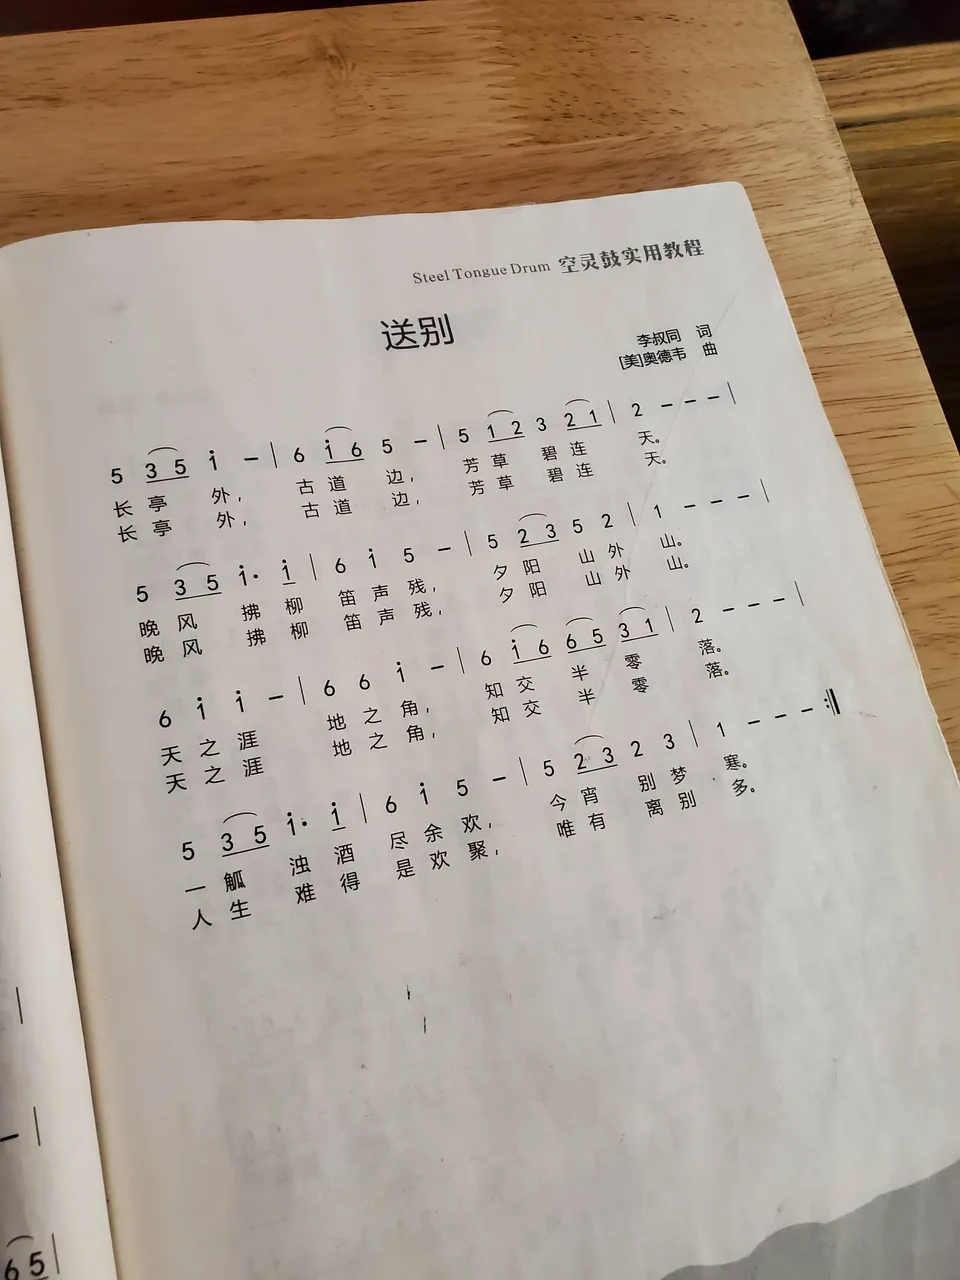 Steel Tongue Drum 空灵鼓实用教程
送别
李叔同 词
[美]奥德韦 曲
5 3 5 i̇ – | 6 i̇ 6 5 – | 5 1 2 3 2 1 | 2 – – – |
长 亭 外， 古 道 边， 芳 草 碧 连 天。
长 亭 外， 古 道 边， 芳 草 碧 连 天。
5 3 5 i̇· i̇ | 6 i̇ 5 – | 5 2 3 5 2 | 1 – – – |
晚 风 拂 柳 笛 声 残， 夕 阳 山 外 山。
晚 风 拂 柳 笛 声 残， 夕 阳 山 外 山。
6 i̇ i̇ – | 6 6 i̇ – | 6 i̇ 6 6 5 3 1 | 2 – – – |
天 之 涯 地 之 角， 知 交 半 零 落。
天 之 涯 地 之 角， 知 交 半 零 落。
5 3 5 i̇· i̇ | 6 i̇ 5 – | 5 2 3 2 3 | 1 – – – :‖
一 觚 浊 酒 尽 余 欢， 今 宵 别 梦 寒。
人 生 难 得 是 欢 聚， 唯 有 离 别 多。
– |
6 5 |